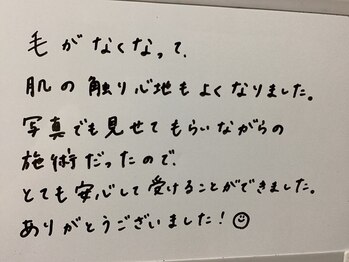 毛がなくなって、
肌の触り心地もよくなりました。
写真でも見せてもらいながらの
施術だったので、
とても安心して受けることができました。
ありがとうございました!☺